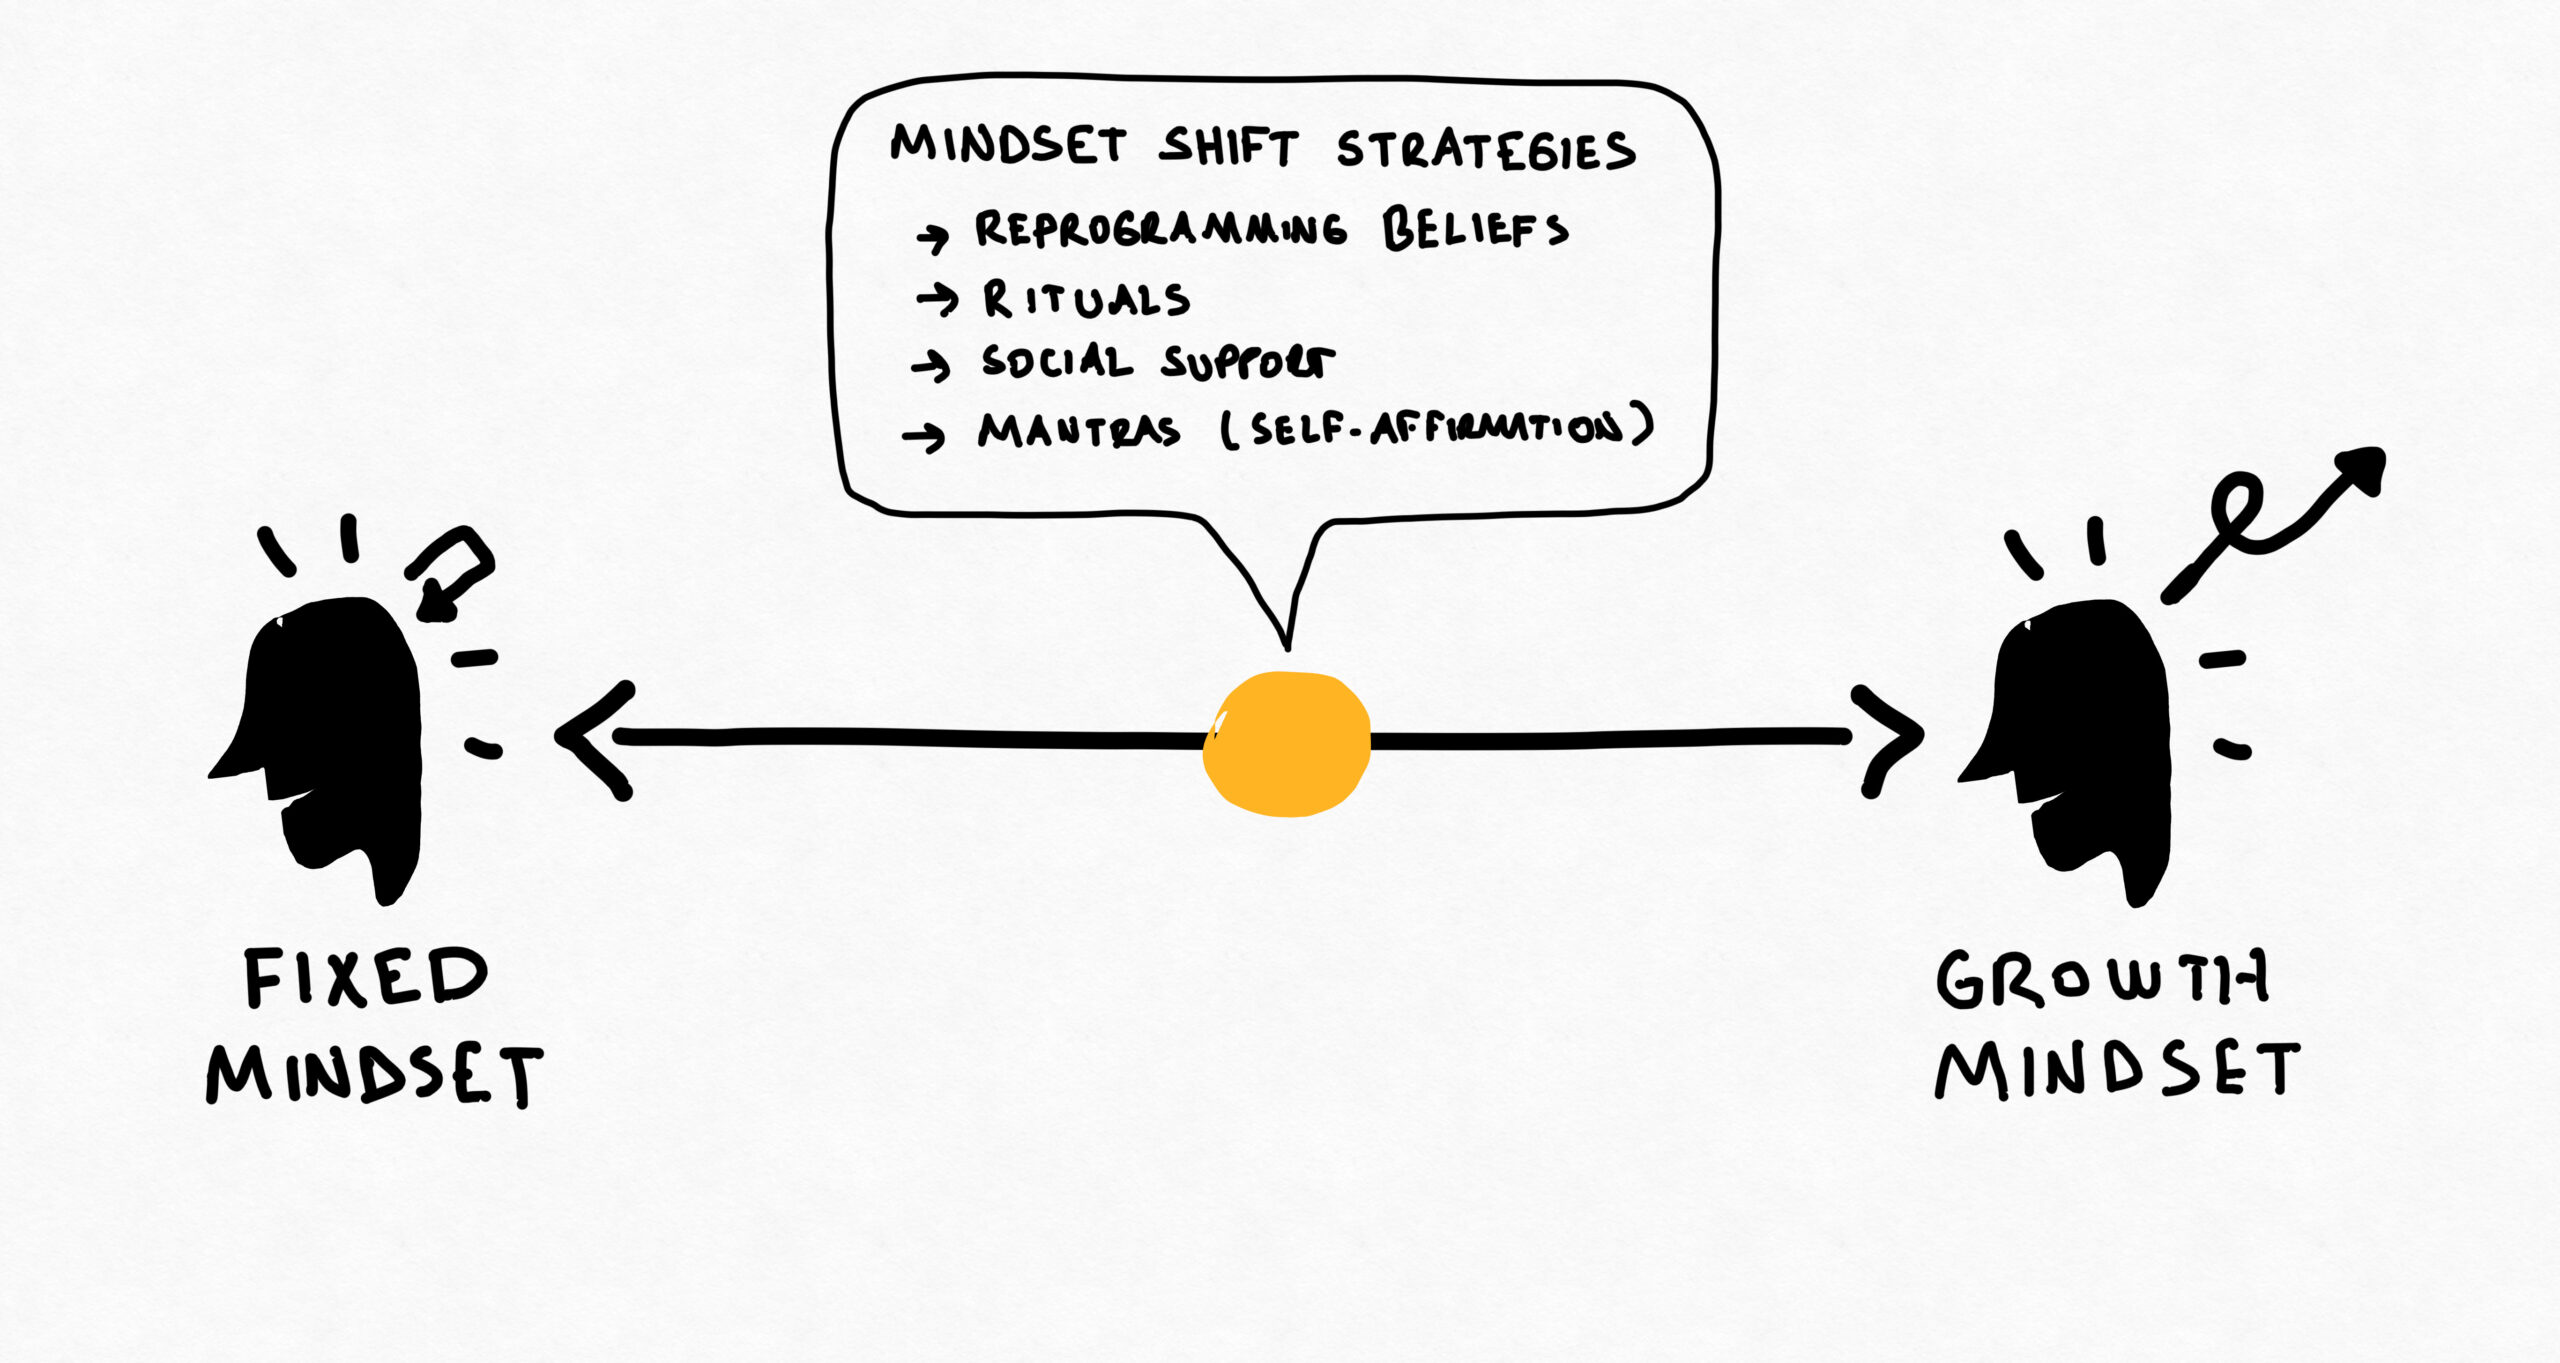 MINDSET SHIFT STRATEGIES
→ REPROGRAMMING BELIEFS
→ RITUALS
→ SOCIAL SUPPORT
→ MANTRAS (SELF-AFFIRMATION)
FIXED
MINDSET
GROWTH
MINDSET